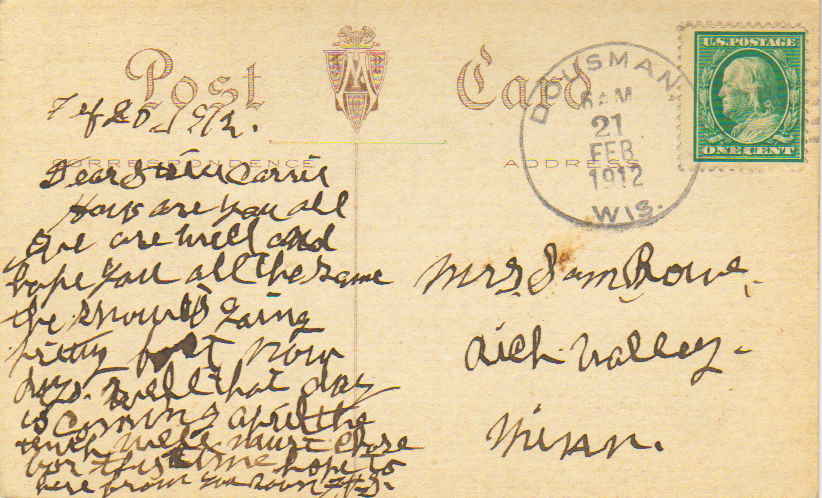 Post Card
U.S. POSTAGE
ONE CENT
DOUSMAN,
6 AM
21
FEB
1912
WIS.
CORRESPONDENCE
ADDRESS
Dear Carrie
How are you all
we are well and
hope you all the same
the snow is going
pretty fast now
days. well that day
is coming april the
tenth. well must close
for this time hope to
here from you soon
Mrs. Sam Rowe,
Rich Valley.
Minn.